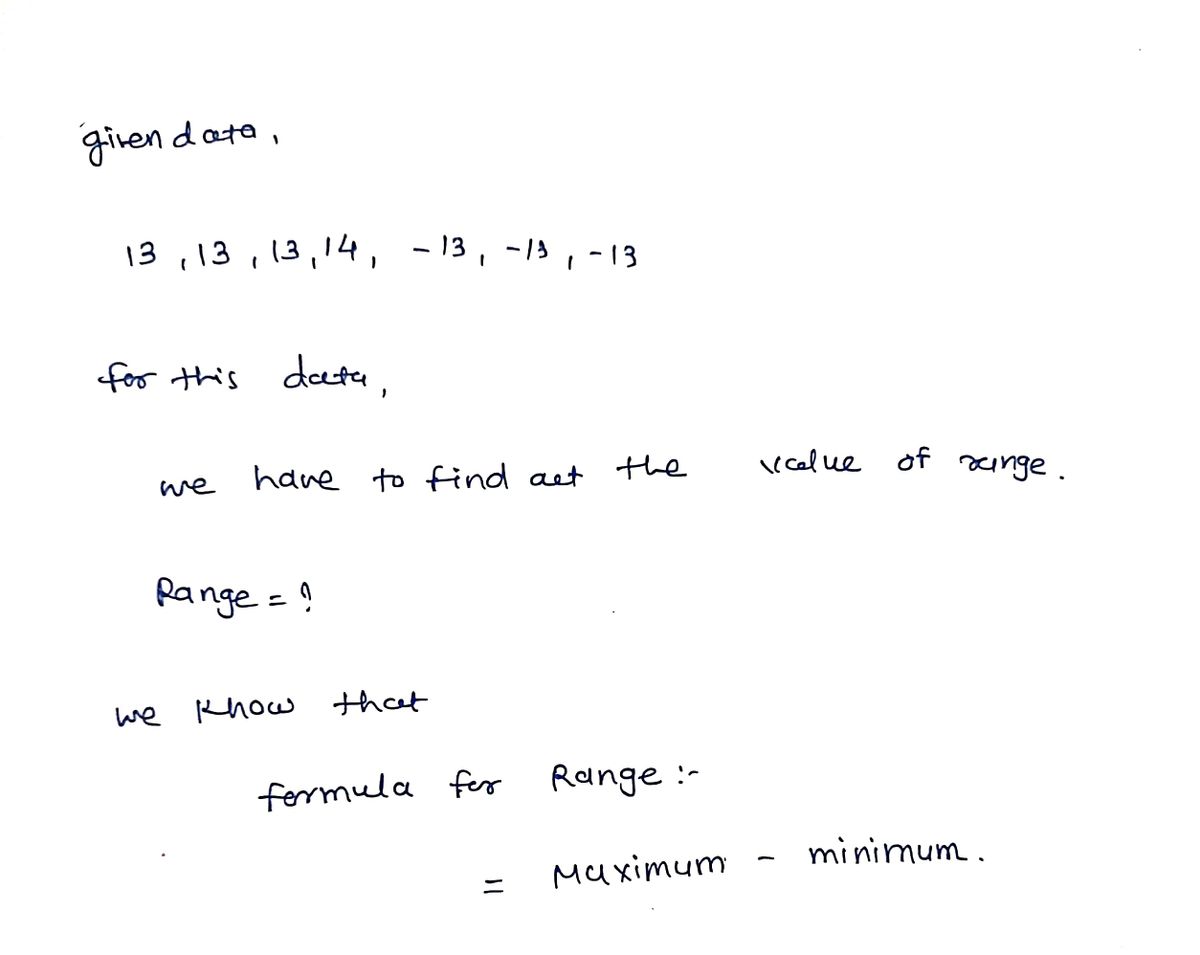 given data,
13, 13, 13, 14, - 13, -13, -13
for this data,
we have to find out the value of range.
Range = ?
we know that
formula for Range :-
= Maximum - minimum.